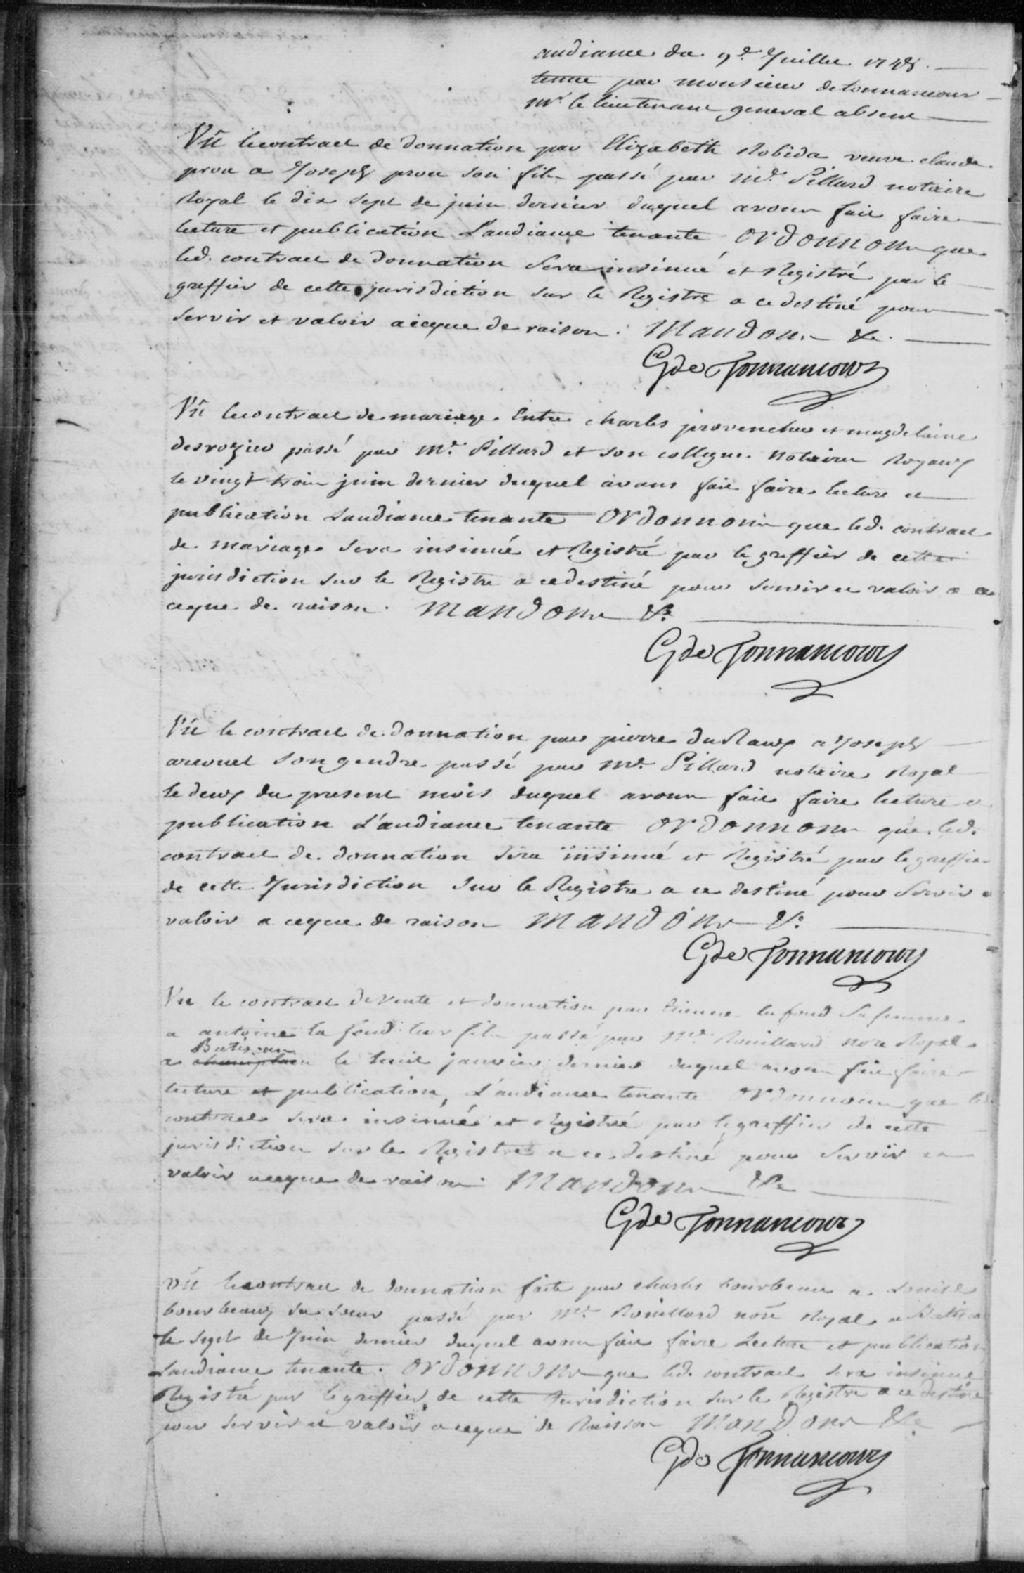 audiance du 9e Juillet 174
tenue par monsieur detonnancour
Mr le lieutenant general absent
Vû le contract de donnation par Elizabeth Robida veuve claude
prou a Joseph prou son fils passé par Me Pillard notaire
Royal le dix sept de juin dernier duquel avons fait faire
lecture et publication L'audiance tenante ordonnons que
led. contract de donnation sera insinué et Registré par le
greffier de cette jurisdiction sur le Registre a ce destiné pour
servir et valoir a ceque de raison. Mandons &c.
Gde Tonnancour
Vû le contract de mariage Entre charles provencher et magdelaine
desrozier passé par Me. Pillard et son collegue. Notaires Royaux
le vingt trois juin dernier duquel avons fait faire lecture et
publication Laudiance tenante ordonnons que led. contract
de mariage sera insinué et Registré par le greffier de cette
jurisdiction sur le Registre a cedestiné pour servir et valoir a ce
ceque de raison. Mandons &c.
Gde Tonnancour
Vû le contract de donnation par pierre duRaux a Joseph
arcouet son gendre passé par Me. Pillard notaire Royal
le deux du present mois duquel avons fait faire lecture et
publication L'audiance tenante ordonnons que led.
contract de donnation sera insinué et Registré par le greffier
de cette Jurisdiction sur le Registre a ce destiné pour servir et
valoir a ceque de raison Mandons &c.
Gde Tonnancour
Vu le contract de vente et donnation par Etienne la fond sa femme
a antoine la fond leur fils passé par Me. Rouillard nore Royal
Batiscan
a champlain le huit janvier dernier duquel avons fait faire
lecture et publication, L'audiance tenante ordonnons que led.
contract sera insinué et Registré par le greffier de cette
jurisdiction sur le Registre a ce destiné pour servir et
valoir a ceque de raison. Mandons &c
Gde Tonnancour
Vû le contract de donnation faite par charles bourbeau a Louise
bourbeaux sa soeur passé par Me. Rouillard nore Royal a
le sept de Juin dernier duquel avons fait faire Lecture et publication
Laudiance tenante. ordonnons que led. contract sera insinué
Registré par le greffier de cette Jurisdiction sur le Registre a ce destiné
pour servir et valoir a ceque de Raison Mandons &c
Gde Tonnancour